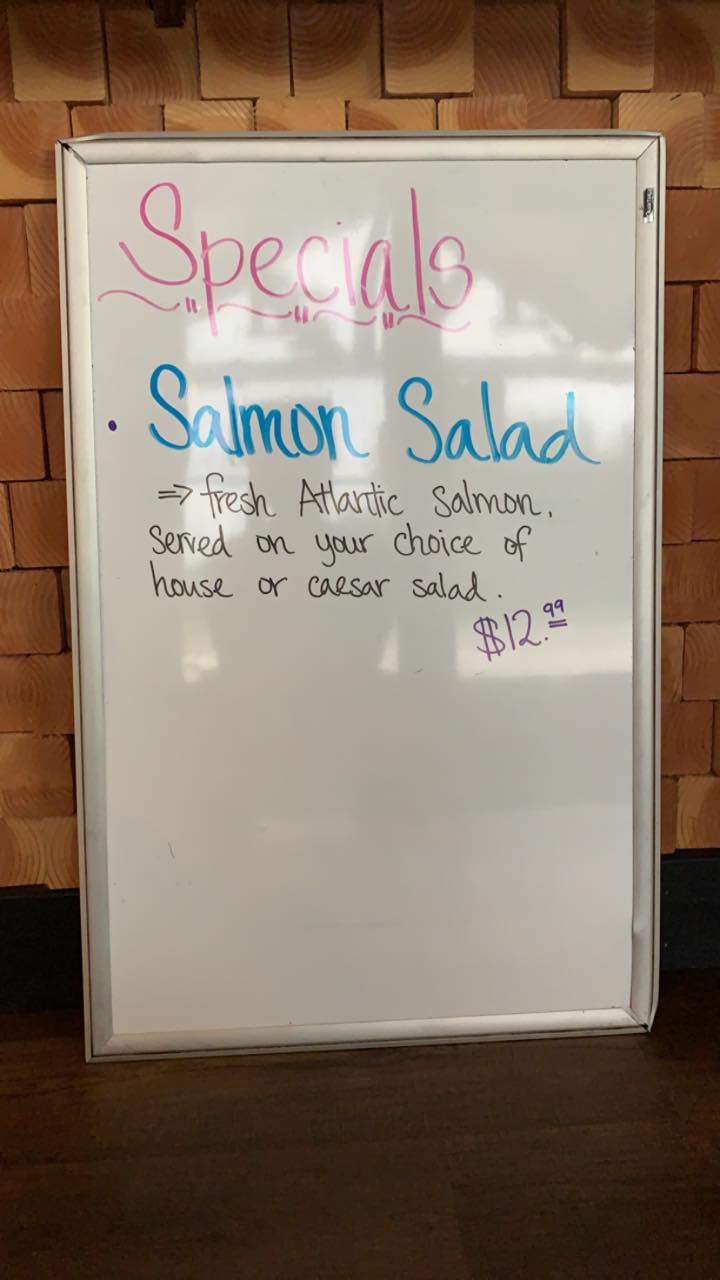 Specials
• Salmon Salad
⇒ fresh Atlantic Salmon,
Served on your choice of
house or caesar salad.
$12.99